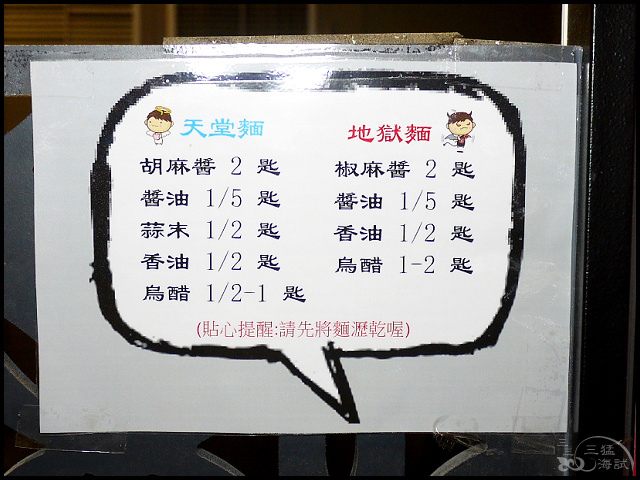 天堂麵
胡麻醬 2 匙
醬油 1/5 匙
蒜末 1/2 匙
香油 1/2 匙
烏醋 1/2-1 匙
地獄麵
椒麻醬 2 匙
醬油 1/5 匙
香油 1/2 匙
烏醋 1-2 匙
(貼心提醒:請先將麵瀝乾喔)
三猛
海試